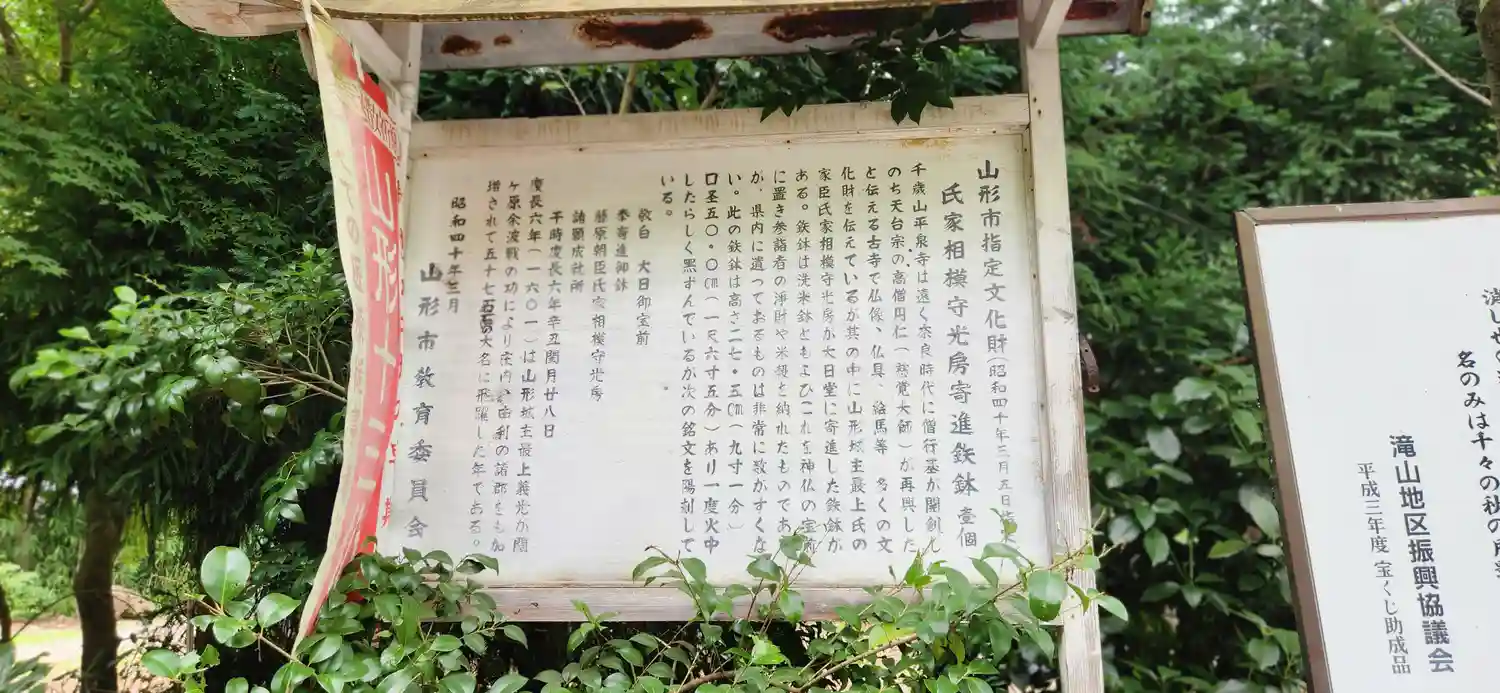 山形市指定文化財(昭和四十年三月五日
氏家相模守光房寄進鉄鉢 壹個
千歳山平泉寺は遠く奈良時代に僧行基が開創し
のち天台宗の高僧円仁(慈覚大師)が再興した
と伝える古寺で仏像、仏具、絵馬等 多くの文
化財を伝えているが其の中に山形城主最上氏の
家臣氏家相模守光房が大日堂に寄進した鉄鉢が
ある。鉄鉢は洗米鉢ともよびこれを神仏の宝前
に置き参詣者の浄財や米穀を納れたものであ
が、県内に遺っておるものは非常に数がすくな
い。此の鉄鉢は高さ二七・五㎝(九寸一分)
口圣五〇・〇㎝(一尺六寸五分)あり一度火中
したらしく黒ずんでいるが次の銘文を陽刻して
いる。
敬白 大日御宝前
奉寄進御鉢
藤原朝臣氏家相模守光房
諸願成社所
干時慶長六年辛丑閏月廿八日
慶長六年(一六〇一)は山形城主最上義光が関
ヶ原余波戦の功により庄内 由利の諸郡をも加
増されて五十七万石の大名に飛躍した年である。
昭和四十年三月
山形市教育委員会
山形十三
名のみは千々の秋の
滝山地区振興協議会
平成三年度 宝くじ助成品